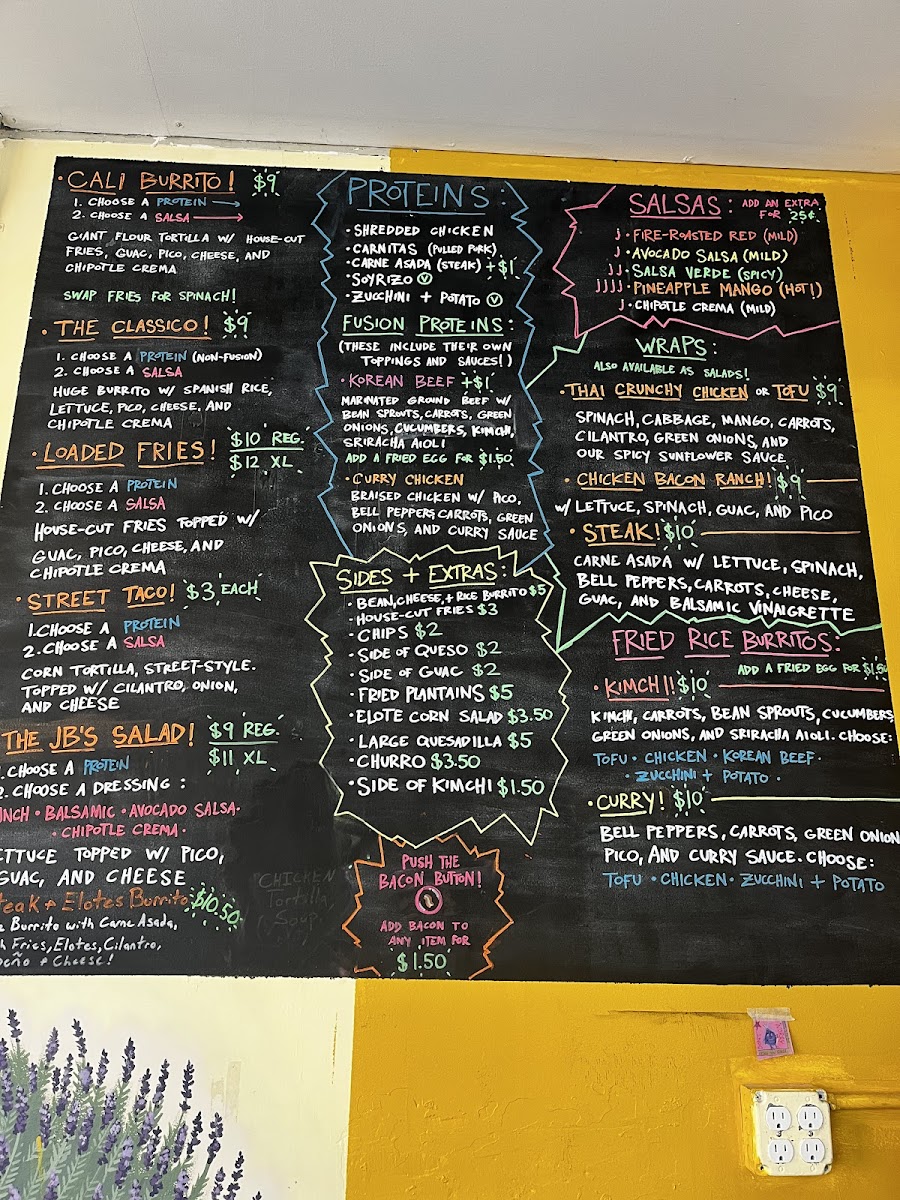 • CALI BURRITO! $9
1. CHOOSE A PROTEIN
2. CHOOSE A SALSA
GIANT FLOUR TORTILLA W/ HOUSE-CUT
FRIES, GUAC, PICO, CHEESE, AND
CHIPOTLE CREMA
SWAP FRIES FOR SPINACH!
• THE CLASSICO! $9
1. CHOOSE A PROTEIN (NON-FUSION)
2. CHOOSE A SALSA
HUGE BURRITO W/ SPANISH RICE,
LETTUCE, PICO, CHEESE, AND
CHIPOTLE CREMA
• LOADED FRIES! $10 REG.
$12 XL
1. CHOOSE A PROTEIN
2. CHOOSE A SALSA
HOUSE-CUT FRIES TOPPED W/
GUAC, PICO, CHEESE, AND
CHIPOTLE CREMA
• STREET TACO! $3 EACH
1. CHOOSE A PROTEIN
2. CHOOSE A SALSA
CORN TORTILLA, STREET-STYLE.
TOPPED W/ CILANTRO, ONION,
AND CHEESE
THE JB'S SALAD! $9 REG.
$11 XL
. CHOOSE A PROTEIN
. CHOOSE A DRESSING:
NCH • BALSAMIC • AVOCADO SALSA •
• CHIPOTLE CREMA •
ETTUCE TOPPED W/ PICO,
GUAC, AND CHEESE
teak + Elotes Burrito $10.50
Burrito with Carne Asada,
Fries, Elotes, Cilantro,
+ Cheese!
PROTEINS:
• SHREDDED CHICKEN
• CARNITAS (PULLED PORK)
• CARNE ASADA (STEAK) +$1
• SOYRIZO V
• ZUCCHINI + POTATO V
FUSION PROTEINS:
(THESE INCLUDE THEIR OWN
TOPPINGS AND SAUCES!)
• KOREAN BEEF +$1
MARINATED GROUND BEEF W/
BEAN SPROUTS, CARROTS, GREEN
ONIONS, CUCUMBERS, KIMCHI,
SRIRACHA AIOLI
ADD A FRIED EGG FOR $1.50
• CURRY CHICKEN
BRAISED CHICKEN W/ PICO,
BELL PEPPERS, CARROTS, GREEN
ONIONS, AND CURRY SAUCE
SIDES + EXTRAS:
• BEAN, CHEESE, + RICE BURRITO $5
• HOUSE-CUT FRIES $3
• CHIPS $2
• SIDE OF QUESO $2
• SIDE OF GUAC $2
• FRIED PLANTAINS $5
• ELOTE CORN SALAD $3.50
• LARGE QUESADILLA $5
• CHURRO $3.50
• SIDE OF KIMCHI $1.50
"CHICKEN
Tortilla
Soup
PUSH THE
BACON BUTTON!
ADD BACON TO
ANY ITEM FOR
$1.50
SALSAS: ADD AN EXTRA
FOR 25¢
• FIRE-ROASTED RED (MILD)
• AVOCADO SALSA (MILD)
• SALSA VERDE (SPICY)
• PINEAPPLE MANGO (HOT!)
• CHIPOTLE CREMA (MILD)
WRAPS:
ALSO AVAILABLE AS SALADS!
• THAI CRUNCHY CHICKEN OR TOFU $9
SPINACH, CABBAGE, MANGO, CARROTS,
CILANTRO, GREEN ONIONS, AND
OUR SPICY SUNFLOWER SAUCE
• CHICKEN BACON RANCH! $9
W/ LETTUCE, SPINACH, GUAC, AND PICO
• STEAK! $10
CARNE ASADA W/ LETTUCE, SPINACH,
BELL PEPPERS, CARROTS, CHEESE,
GUAC, AND BALSAMIC VINAIGRETTE
FRIED RICE BURRITOS:
ADD A FRIED EGG FOR $1.50
• KIMCHI! $10
KIMCHI, CARROTS, BEAN SPROUTS, CUCUMBERS
GREEN ONIONS, AND SRIRACHA AIOLI. CHOOSE:
TOFU • CHICKEN • KOREAN BEEF •
• ZUCCHINI + POTATO •
• CURRY! $10
BELL PEPPERS, CARROTS, GREEN ONION
PICO, AND CURRY SAUCE. CHOOSE:
TOFU • CHICKEN • ZUCCHINI + POTATO